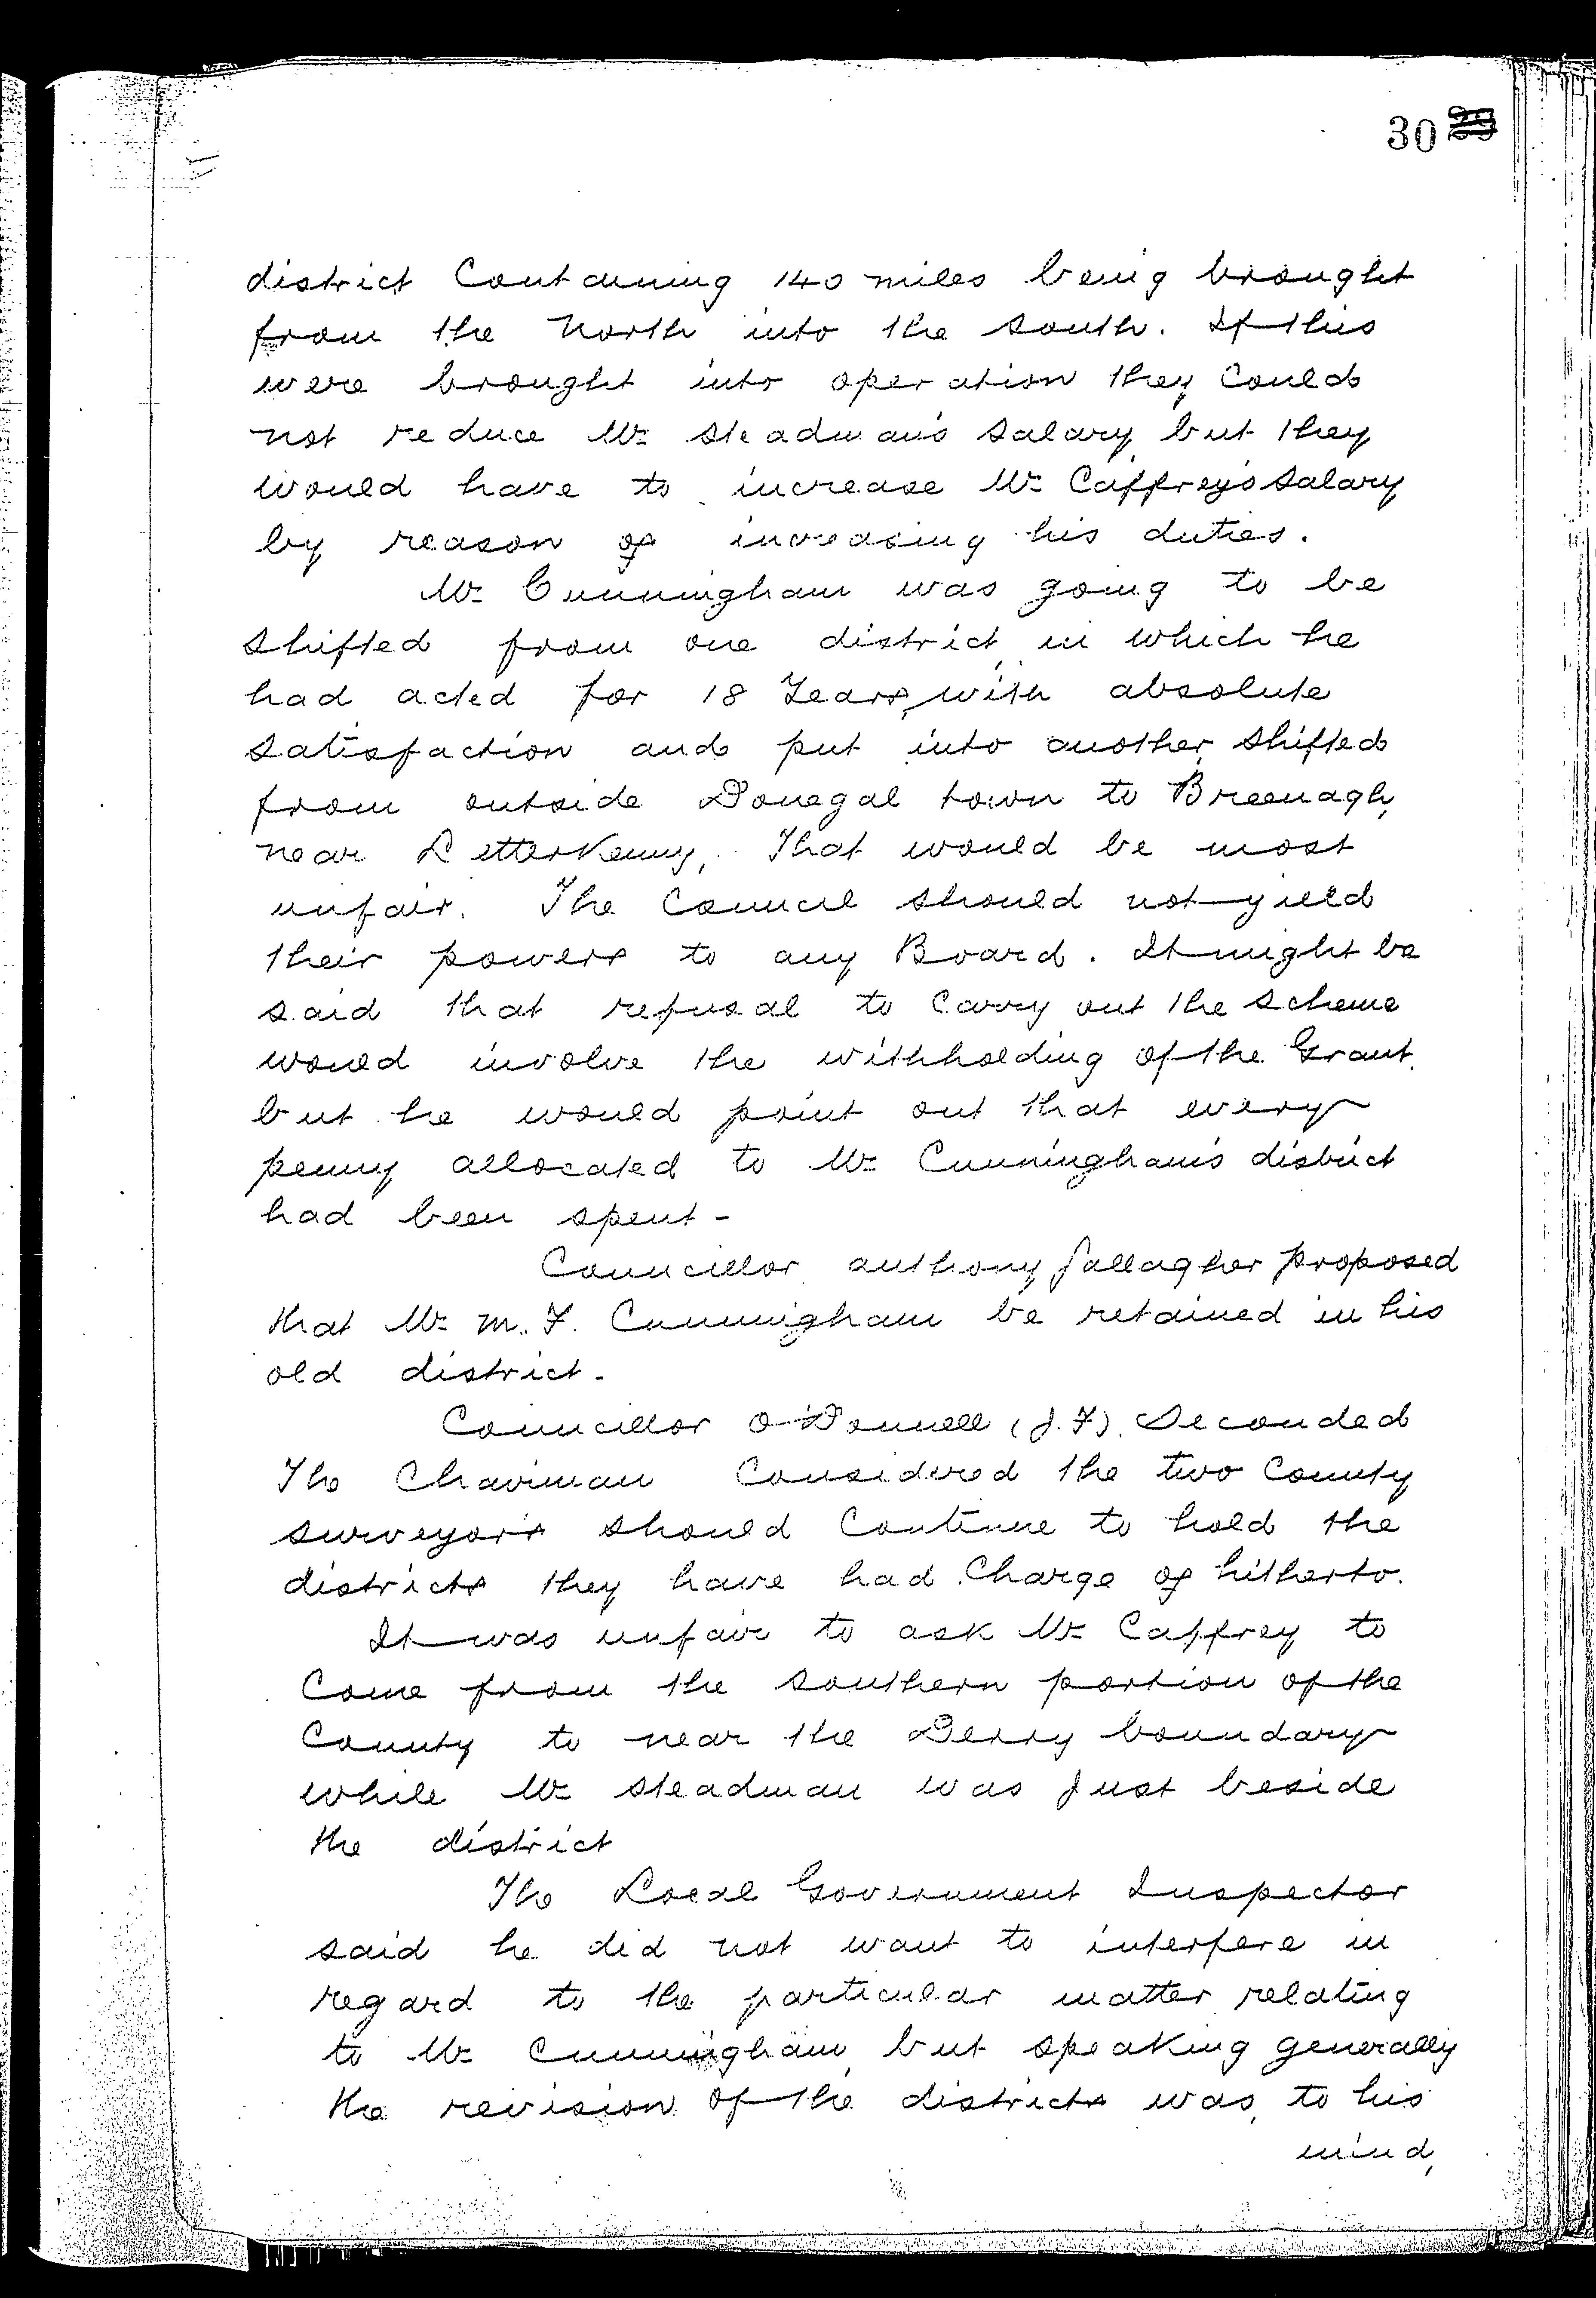 30 29
district Containing 140 miles being brought
from the North into the South. If this
were brought into operation they could
not reduce Mr Steadman's salary but they
would have to increase Mr Caffrey's salary
by reason of increasing his duties.
Mr Cunningham was going to be
shifted from one district in which he
had acted for 18 Years, with absolute
satisfaction and put into another, shifted
from outside Donegal town to Breenagh,
near Letterkenny, That would be most
unfair. The Council should not yield
their powers to any Board. It might be
said that refusal to carry out the scheme
would involve the withholding of the Grant.
but he would point out that every
penny allocated to Mr Cunningham's district
had been spent -
Councillor Anthony Gallagher proposed
that Mr M. F. Cunningham be retained in his
old district -
Councillor O'Donnell (J. F). Seconded
The Chairman Considered the two County
surveyors should Continue to hold the
districts they have had Charge of hitherto.
It was unfair to ask Mr Caffrey to
Come from the southern portion of the
County to near the Derry boundary
while Mr Steadman was just beside
the district
The Local Government Inspector
said he did not want to interfere in
regard to the particular matter relating
to Mr Cunningham, but speaking generally
the revision of the districts was, to his
mind,